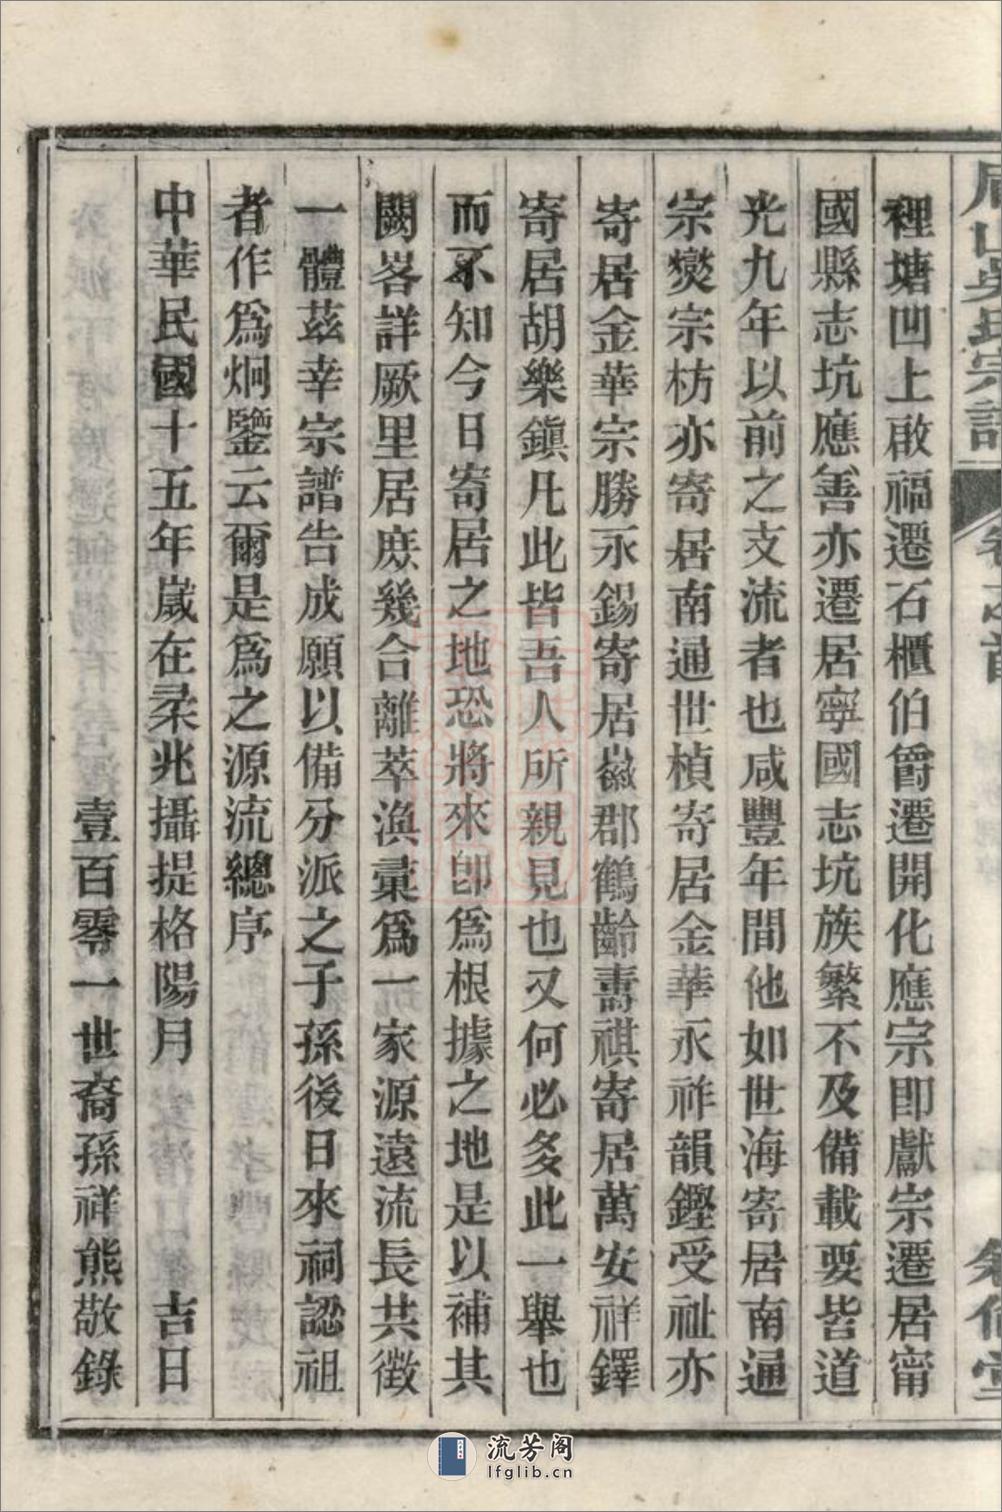 裡塘凹上啟福遷石櫃伯爵遷開化應宗即獻宗遷居甯
國縣志坑應善亦遷居寧國志坑族繁不及備載要皆道
光九年以前之支流者也咸豐年間他如世海寄居南通
宗燮宗枋亦寄居南通世楨寄居金華永祥韻鏗受祉亦
寄居金華宗勝永錫寄居嶶郡鶴齡壽祺寄居萬安祥鐸
寄居胡樂鎮凡此皆吾人所親見也又何必多此一舉也
而不知今日寄居之地恐將來卽為根據之地是以補其
闕畧詳厥里居庶幾合離萃渙彙為一家源遠流長共徵
一體茲幸宗譜告成願以備分派之子孫後日來祠認祖
者作為炯鑒云爾是為之源流總序
中華民國十五年歲在柔兆攝提格陽月 吉日
壹百零一世裔孫祥熊敬錄
流芳阁
lfglib.cn